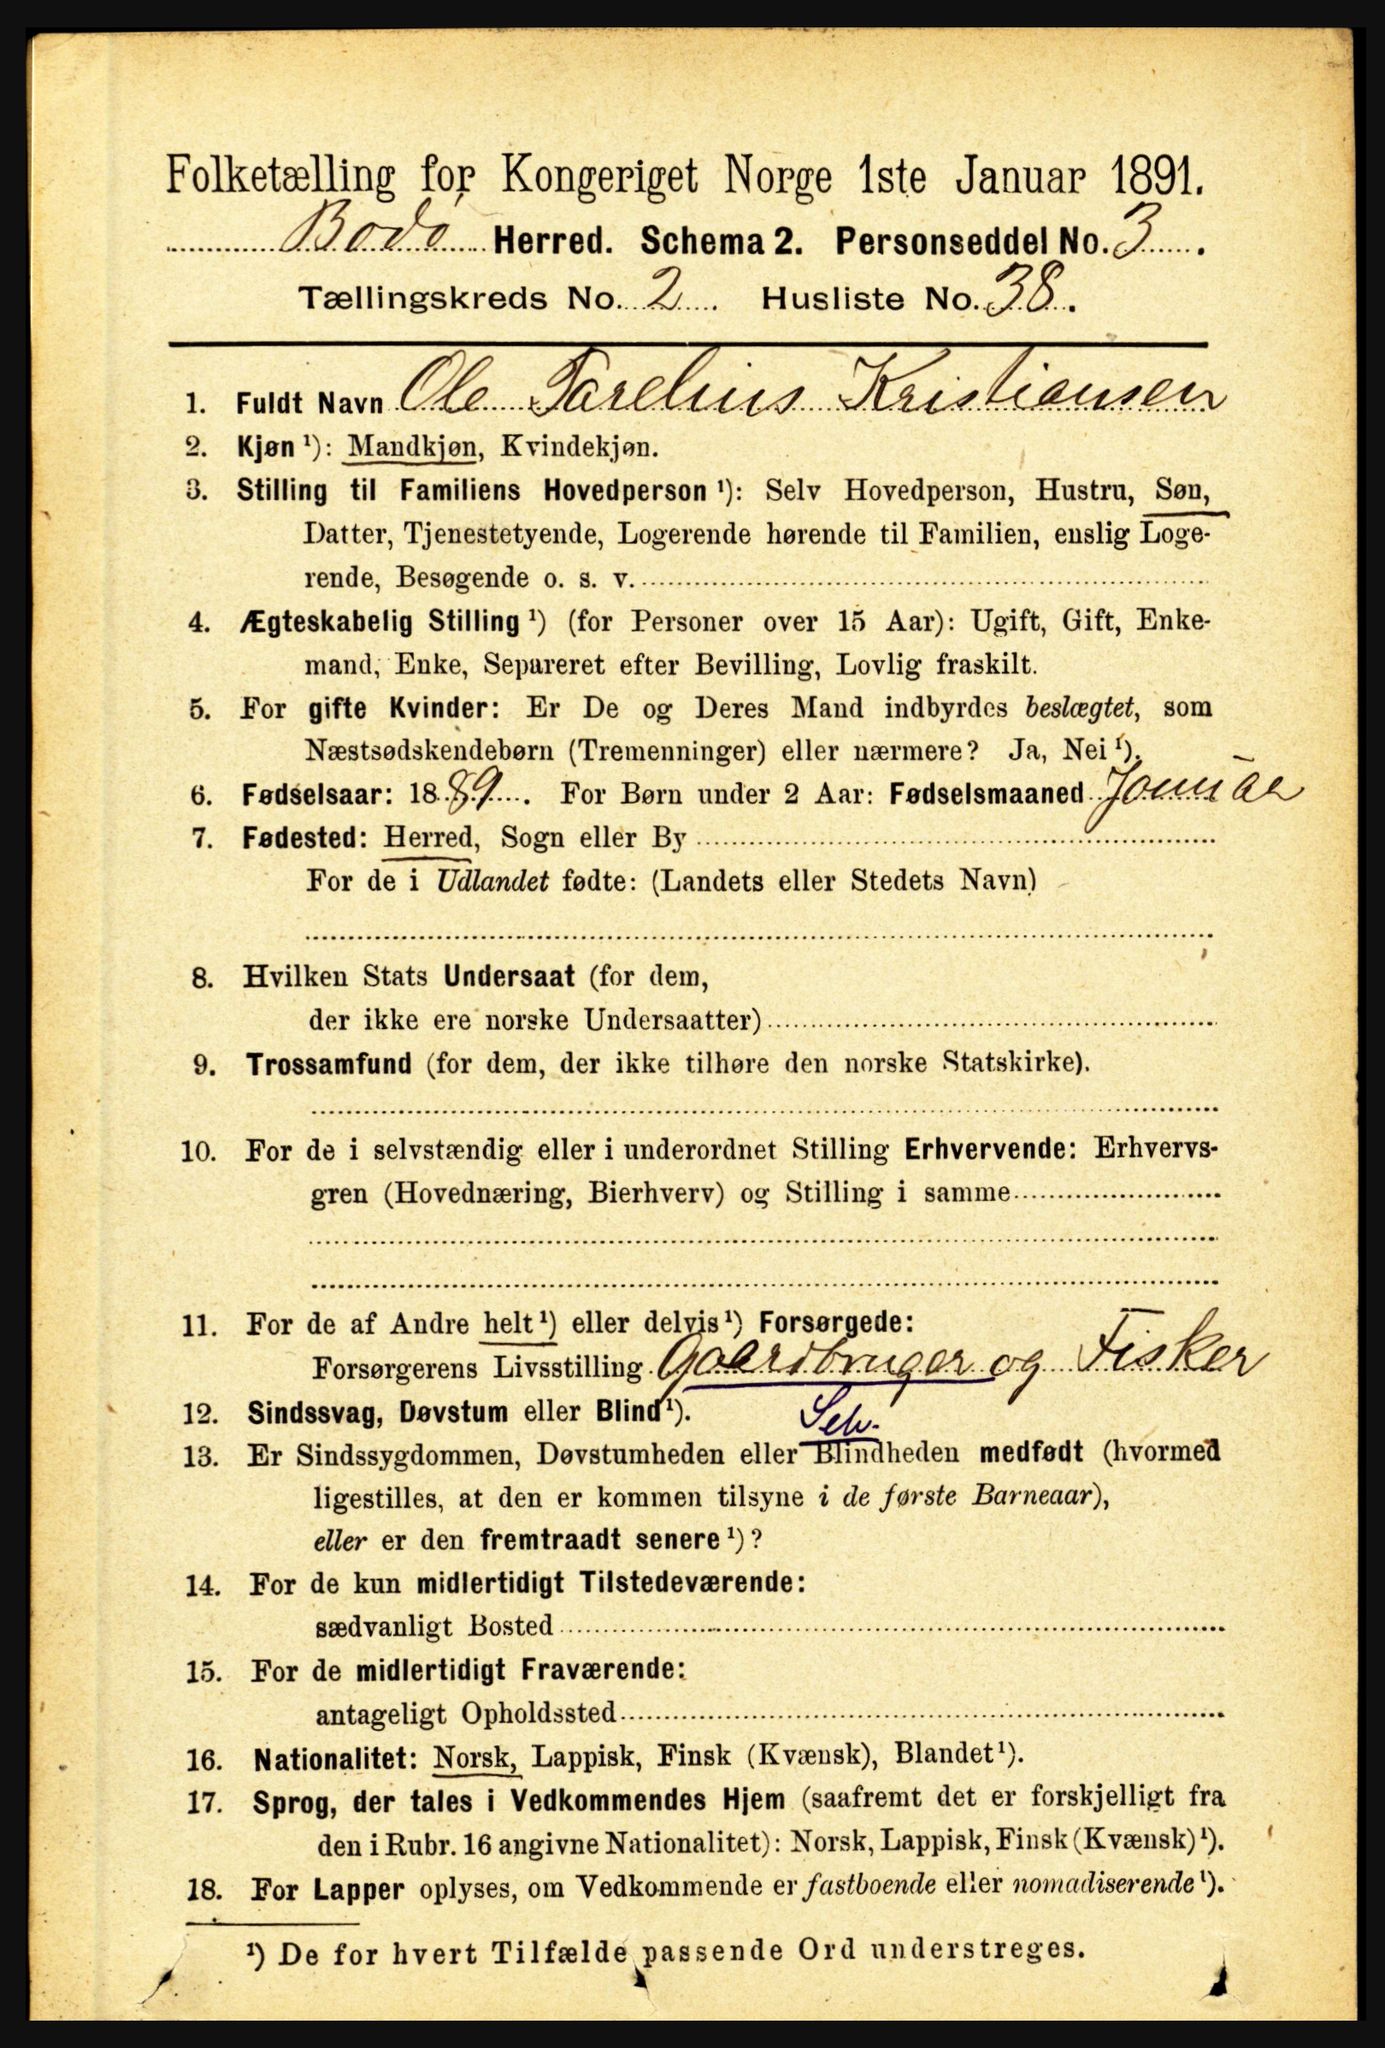 Folketælling for Kongeriget Norge 1ste Januar 1891.
Bodø Herred. Schema 2. Personseddel No. 3.
Tællingskreds No. 2. Husliste No. 38.
1. Fuldt Navn Ole Parelius Kristiansen
2. Kjøn¹): Mandkjøn, Kvindekjøn.
3. Stilling til Familiens Hovedperson¹): Selv Hovedperson, Hustru, Søn,
Datter, Tjenestetyende, Logerende hørende til Familien, enslig Loge-
rende, Besøgende o. s. v.
4. Ægteskabelig Stilling¹) (for Personer over 15 Aar): Ugift, Gift, Enke-
mand, Enke, Separeret efter Bevilling, Lovlig fraskilt.
5. For gifte Kvinder: Er De og Deres Mand indbyrdes beslægtet, som
Næstsødskendebørn (Tremenninger) eller nærmere? Ja, Nei¹).
6. Fødselsaar: 1889. For Børn under 2 Aar: Fødselsmaaned Januar
7. Fødested: Herred, Sogn eller By
For de i Udlandet fødte: (Landets eller Stedets Navn)
8. Hvilken Stats Undersaat (for dem,
der ikke ere norske Undersaatter)
9. Trossamfund (for dem, der ikke tilhøre den norske Statskirke).
10. For de i selvstændig eller i underordnet Stilling Erhvervende: Erhvervs-
gren (Hovednæring, Bierhverv) og Stilling i samme
11. For de af Andre helt¹) eller delvis¹) Forsørgede:
Forsørgerens Livsstilling Gaardbruger og Fisker
12. Sindssvag, Døvstum eller Blind¹). Selv.
13. Er Sindssygdommen, Døvstumheden eller Blindheden medfødt (hvormed
ligestilles, at den er kommen tilsyne i de første Barneaar),
eller er den fremtraadt senere¹)?
14. For de kun midlertidigt Tilstedeværende:
sædvanligt Bosted
15. For de midlertidigt Fraværende:
antageligt Opholdssted
16. Nationalitet: Norsk, Lappisk, Finsk (Kvænsk), Blandet¹).
17. Sprog, der tales i Vedkommendes Hjem (saafremt det er forskjelligt fra
den i Rubr. 16 angivne Nationalitet): Norsk, Lappisk, Finsk (Kvænsk)¹).
18. For Lapper oplyses, om Vedkommende er fastboende eller nomadiserende¹).
¹) De for hvert Tilfælde passende Ord understreges.